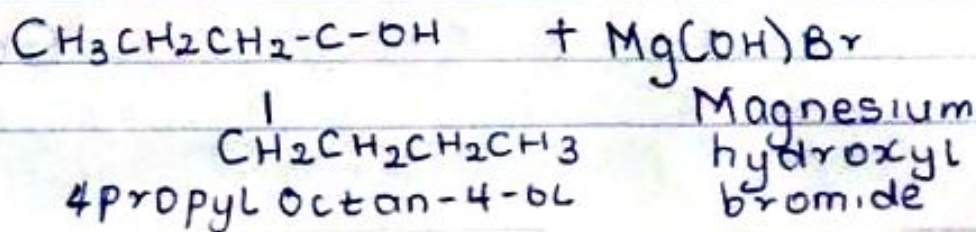 CH3CH2CH2-C-OH + Mg(OH)Br
|
CH2CH2CH2CH3
4propyl octan-4-ol
Magnesium
hydroxyl
bromide